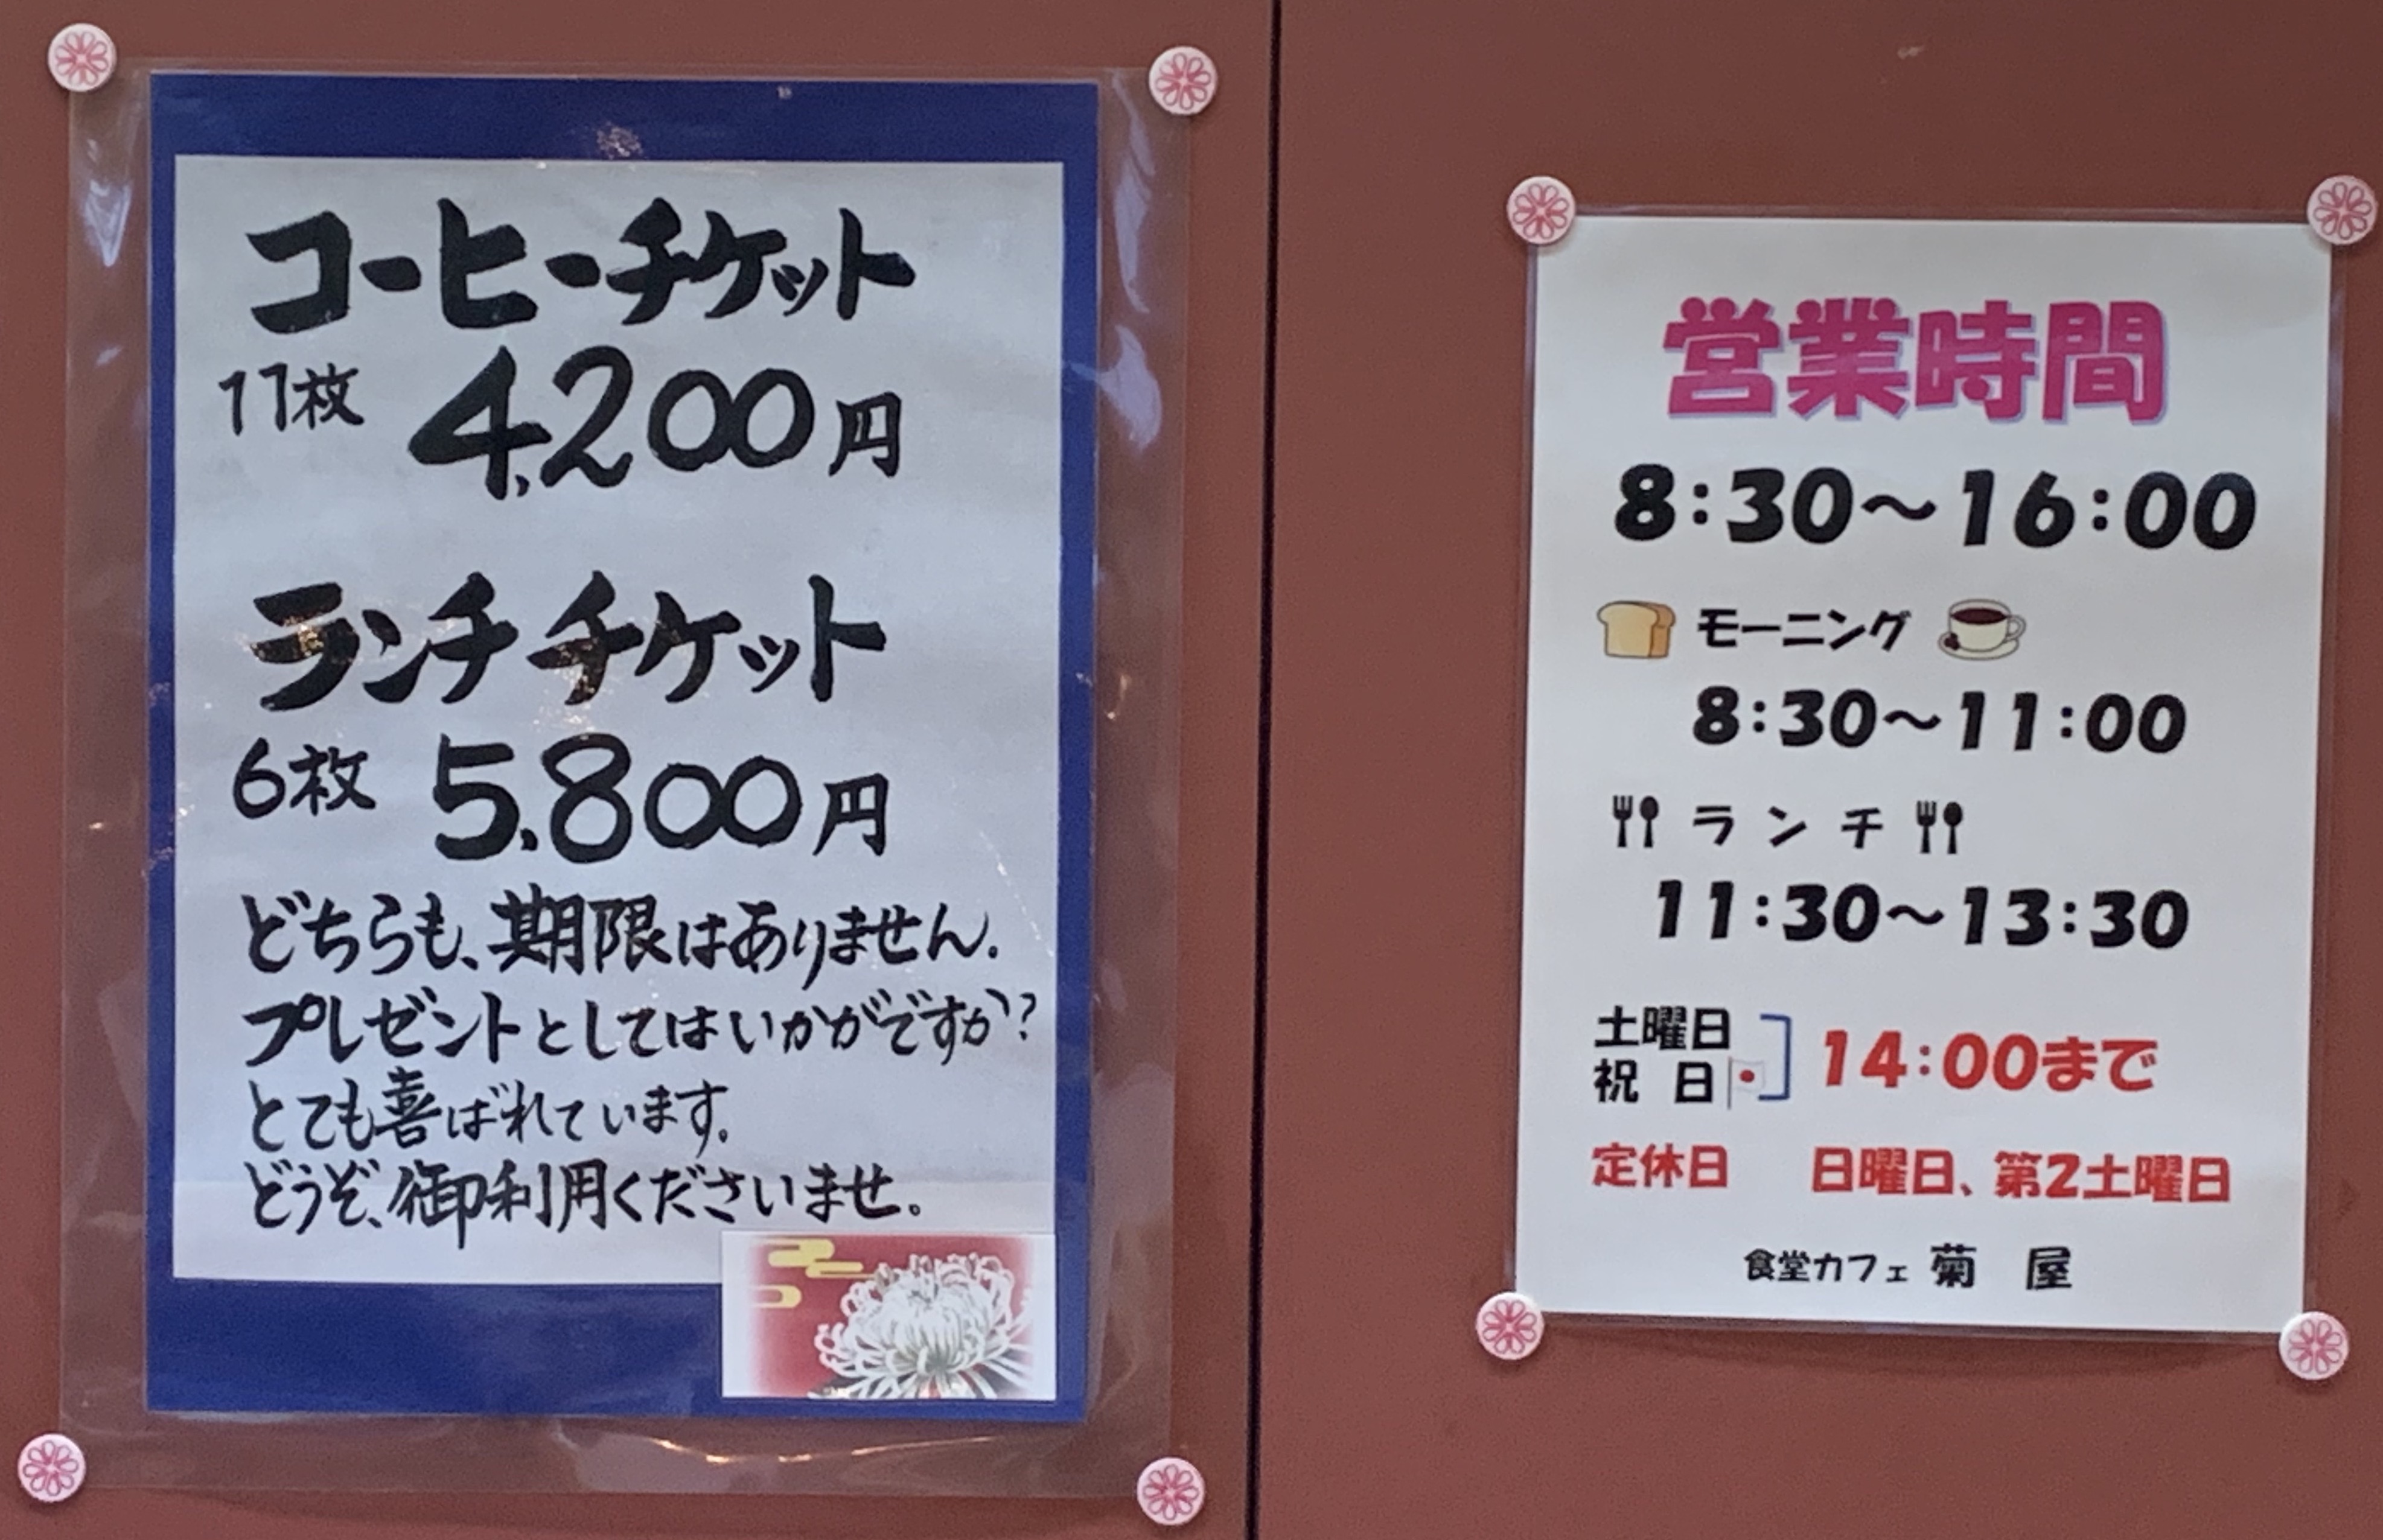 コーヒーチケット
11枚 4,200円
ランチチケット
6枚 5,800円
どちらも、期限はありません。
プレゼントとしてはいかがですか?
とても喜ばれています。
どうぞ、御利用くださいませ。
営業時間
8:30～16:00
モーニング
8:30～11:00
ランチ
11:30～13:30
土曜日
祝 日
14:00まで
定休日 日曜日、第2土曜日
食堂カフェ 菊 屋